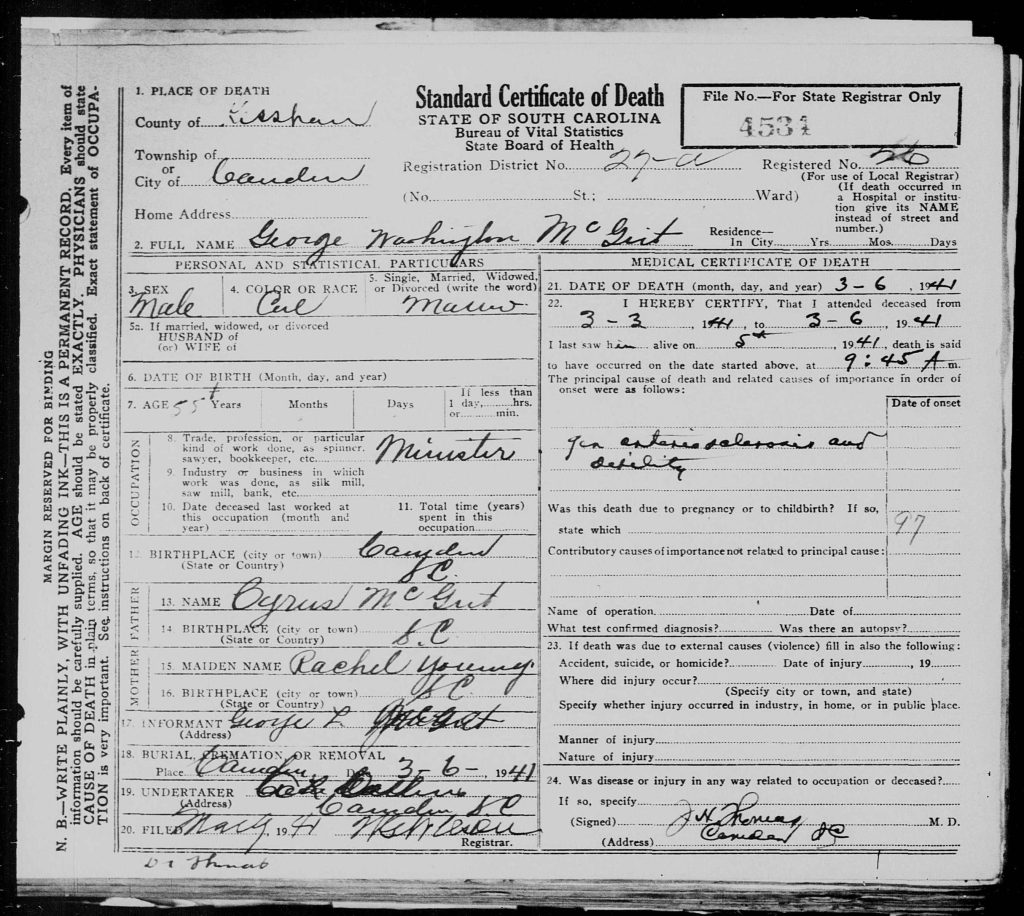 MARGIN RESERVED FOR BINDING
N. B.—WRITE PLAINLY, WITH UNFADING INK—THIS IS A PERMANENT RECORD. Every item of
information should be carefully supplied. AGE should be stated EXACTLY. PHYSICIANS should state
CAUSE OF DEATH in plain terms, so that it may be properly classified. Exact statement of OCCUPA-
TION is very important. See instructions on back of certificate.
Standard Certificate of Death
STATE OF SOUTH CAROLINA
Bureau of Vital Statistics
State Board of Health
File No.—For State Registrar Only
4534
1. PLACE OF DEATH
County of Kershaw
Township of
or
City of Camden
Home Address
Registration District No. 27-a
Registered No. 26
(For use of Local Registrar)
(No. St.; Ward)
(If death occurred in
a Hospital or institu-
tion give its NAME
instead of street and
number.)
2. FULL NAME George Washington McGirt
Residence—
In City Yrs. Mos. Days
PERSONAL AND STATISTICAL PARTICULARS
3. SEX
Male
4. COLOR OR RACE
Col
5. Single, Married, Widowed,
or Divorced (write the word)
5a. If married, widowed, or divorced
HUSBAND of
(or) WIFE of
6. DATE OF BIRTH (Month, day, and year)
7. AGE 55 Years Months Days
If less than
1 day, hrs.
or min.
OCCUPATION
8. Trade, profession, or particular
kind of work done, as spinner,
sawyer, bookkeeper, etc. Minister
9. Industry or business in which
work was done, as silk mill,
saw mill, bank, etc.
10. Date deceased last worked at
this occupation (month and
year)
11. Total time (years)
spent in this
occupation
12. BIRTHPLACE (city or town) Camden
(State or Country) S.C.
FATHER
13. NAME Cyrus McGirt
14. BIRTHPLACE (city or town)
(State or Country) S.C.
MOTHER
15. MAIDEN NAME Rachel Young
16. BIRTHPLACE (city or town)
(State or Country) S.C.
17. INFORMANT George L. McGirt
(Address)
18. BURIAL, CREMATION OR REMOVAL
Place Camden D 3-6-, 1941
19. UNDERTAKER
(Address) Camden S.C
20. FILED 1941
Registrar.
MEDICAL CERTIFICATE OF DEATH
21. DATE OF DEATH (month, day, and year) 3-6, 1941
22. I HEREBY CERTIFY, That I attended deceased from
3-3 1941, to 3-6, 1941
I last saw him alive on 5th, 1941, death is said
to have occurred on the date started above, at 9:45 A m.
The principal cause of death and related causes of importance in order of
onset were as follows:
Date of onset
Gen arteriosclerosis and
debility
Was this death due to pregnancy or to childbirth? If so,
state which
97
Contributory causes of importance not related to principal cause:
Name of operation Date of
What test confirmed diagnosis? Was there an autopsy?
23. If death was due to external causes (violence) fill in also the following:
Accident, suicide, or homicide? Date of injury, 19
Where did injury occur?
(Specify city or town, and state)
Specify whether injury occurred in industry, in home, or in public place.
Manner of injury
Nature of injury
24. Was disease or injury in any way related to occupation or deceased?
If so, specify
(Signed) J N Thomas M. D.
(Address) Camden SC